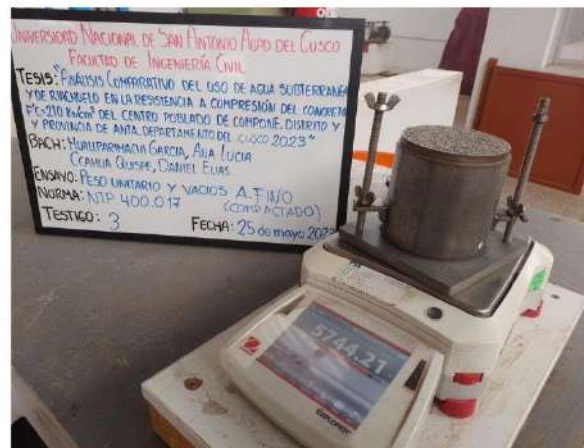 UNIVERSIDAD NACIONAL DE SAN ANTONIO ABAD DEL CUSCO
FACULTAD DE INGENIERÍA CIVIL
TESIS: "ANÁLISIS COMPARATIVO DEL USO DE AGUA SUBTERRANEA
Y DE RIACHUELO EN LA RESISTENCIA A COMPRESIÓN DEL CONCRETO
F'C=210 KG/CM² DEL CENTRO POBLADO DE COMPONE, DISTRITO Y
Y PROVINCIA DE ANTA, DEPARTAMENTO DEL CUSCO 2023"
BACH: HUALLPARIMACHI GARCIA, ANA LUCIA
CCAHUA QUISPE, DANIEL ELIAS
ENSAYO: PESO UNITARIO Y VACIOS A. FINO
(COMPACTADO)
NORMA: NTP 400.017
TESTIGO: 3
FECHA: 25 de mayo 2023
5744.21
EXPLORER